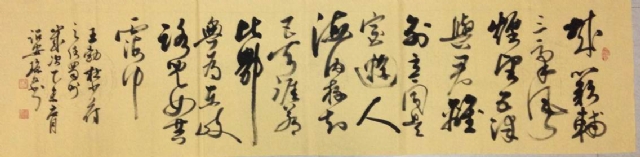 城闕輔
三秦風
煙望五津
與君離
別意同是
宦遊人
海內存知
己天涯若
比鄰
無為在歧
路兒女共
霑巾
王勃杜少府
之任蜀州
歲次乙 月